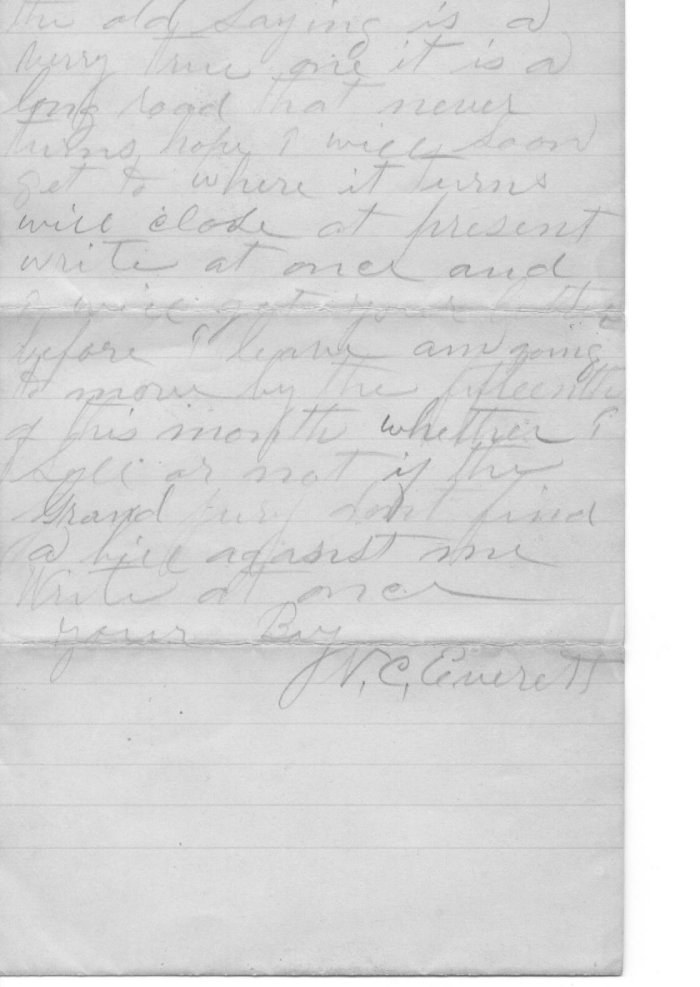 the old saying is a
verry true one it is a
long road that never
turns hope I will soon
get to where it turns
will close at present
write at once and
I will get your letter
before I leave am going
to move by the fifteenth
of this month whether I
sell or not if the
grand jury dont find
a bill against me
Write at once
your By
N. C. Everett